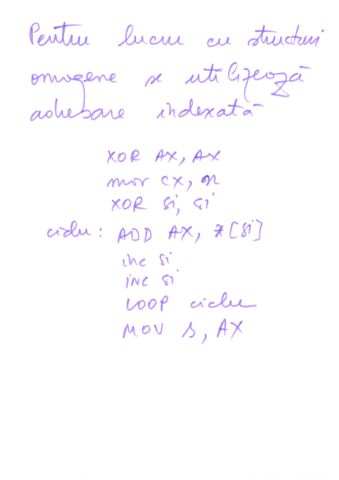 Pentru lucru cu structuri
omogene se utilizează
adresare indexată
XOR AX, AX
mov cx, n
XOR si, si
ciclu: ADD AX, x[si]
inc si
inc si
LOOP ciclu
MOV s, AX